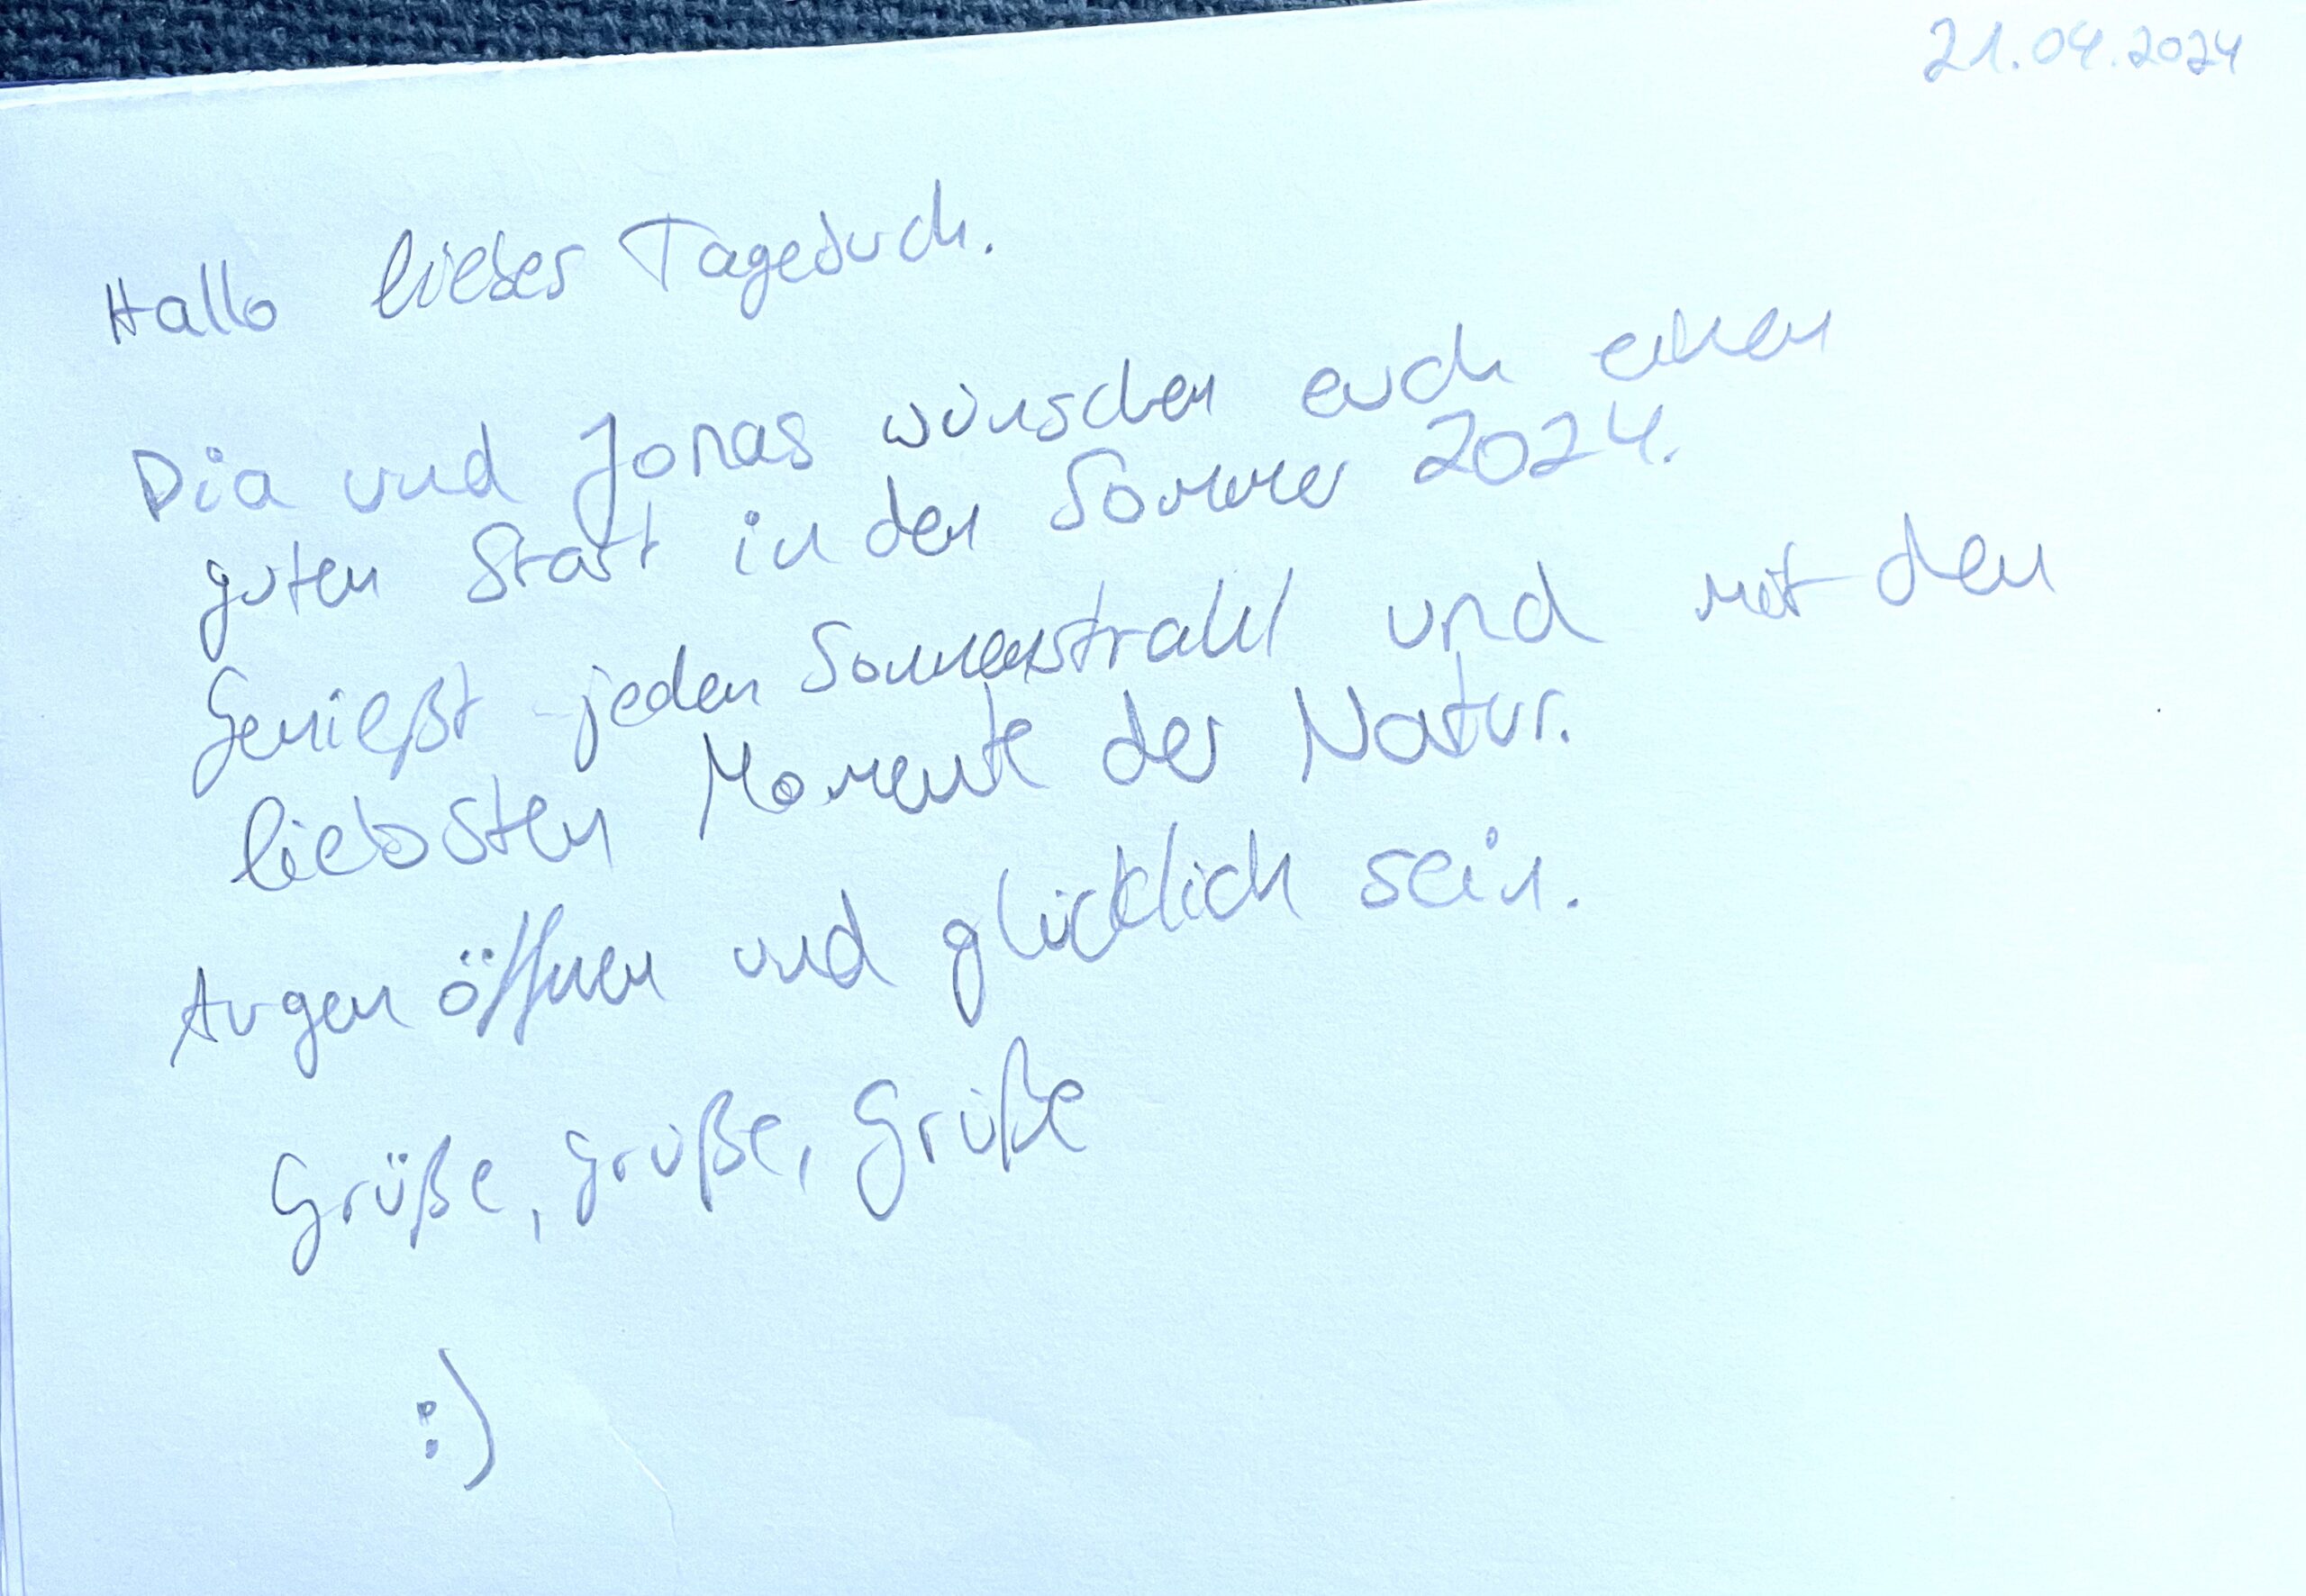 21.04.2024
Hallo liebes Tagebuch.
Dia und Jonas wünschen euch einen
guten Start in den Sommer 2024.
Genießt jeden Sonnenstrahl und mit den
liebsten Momente der Natur.
Augen öffnen und glücklich sein.
Grüße, Grüße, Grüße
:)